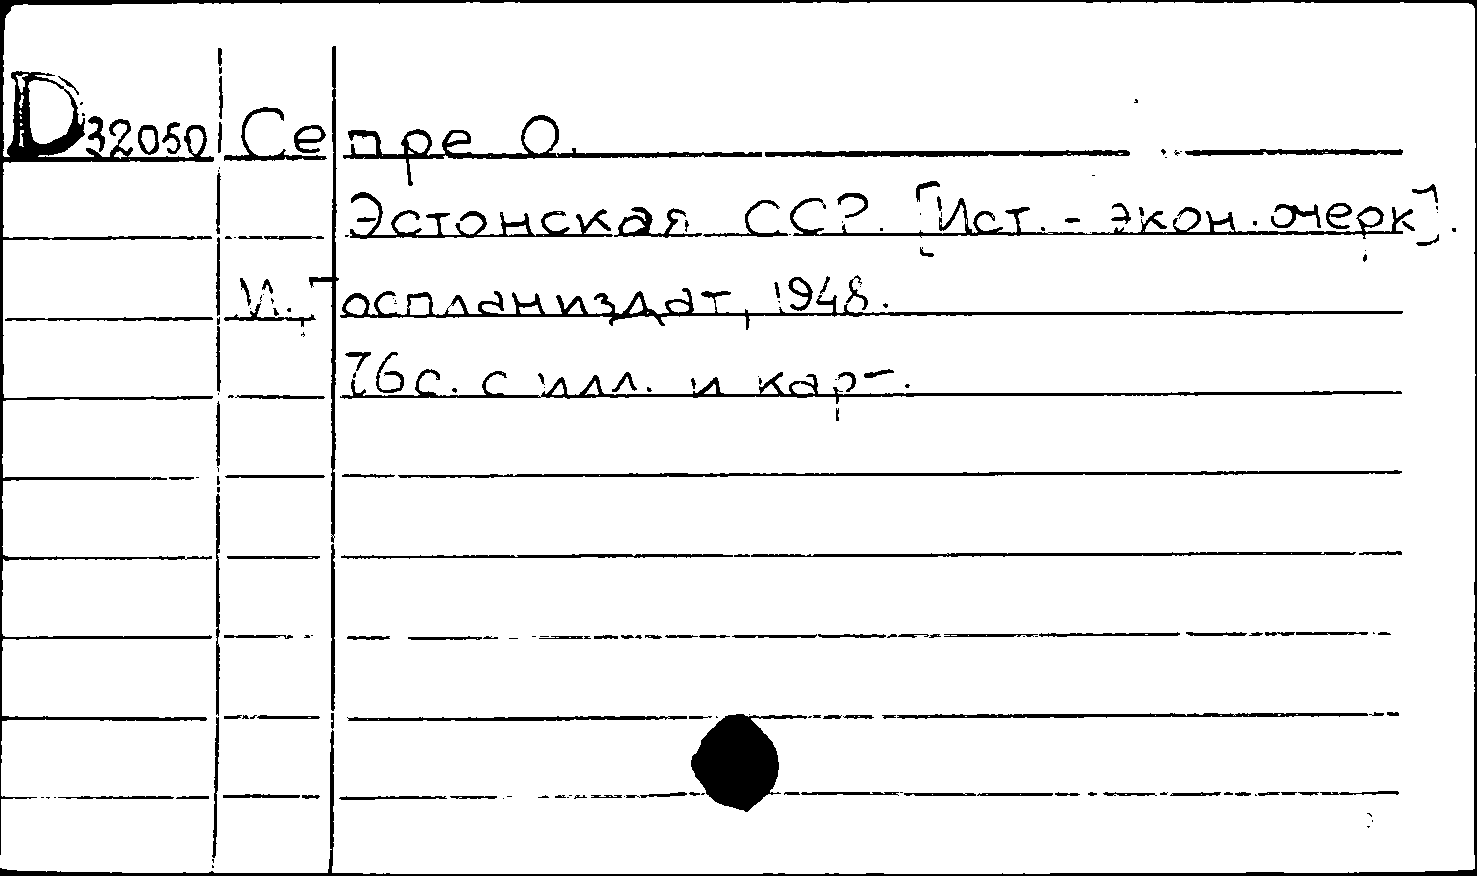 D32050 Сепре О.
Эстонская ССР. [Ист.-экон. очерк].
М., Госпланиздат, 1948.
76с. с илл. и карт.